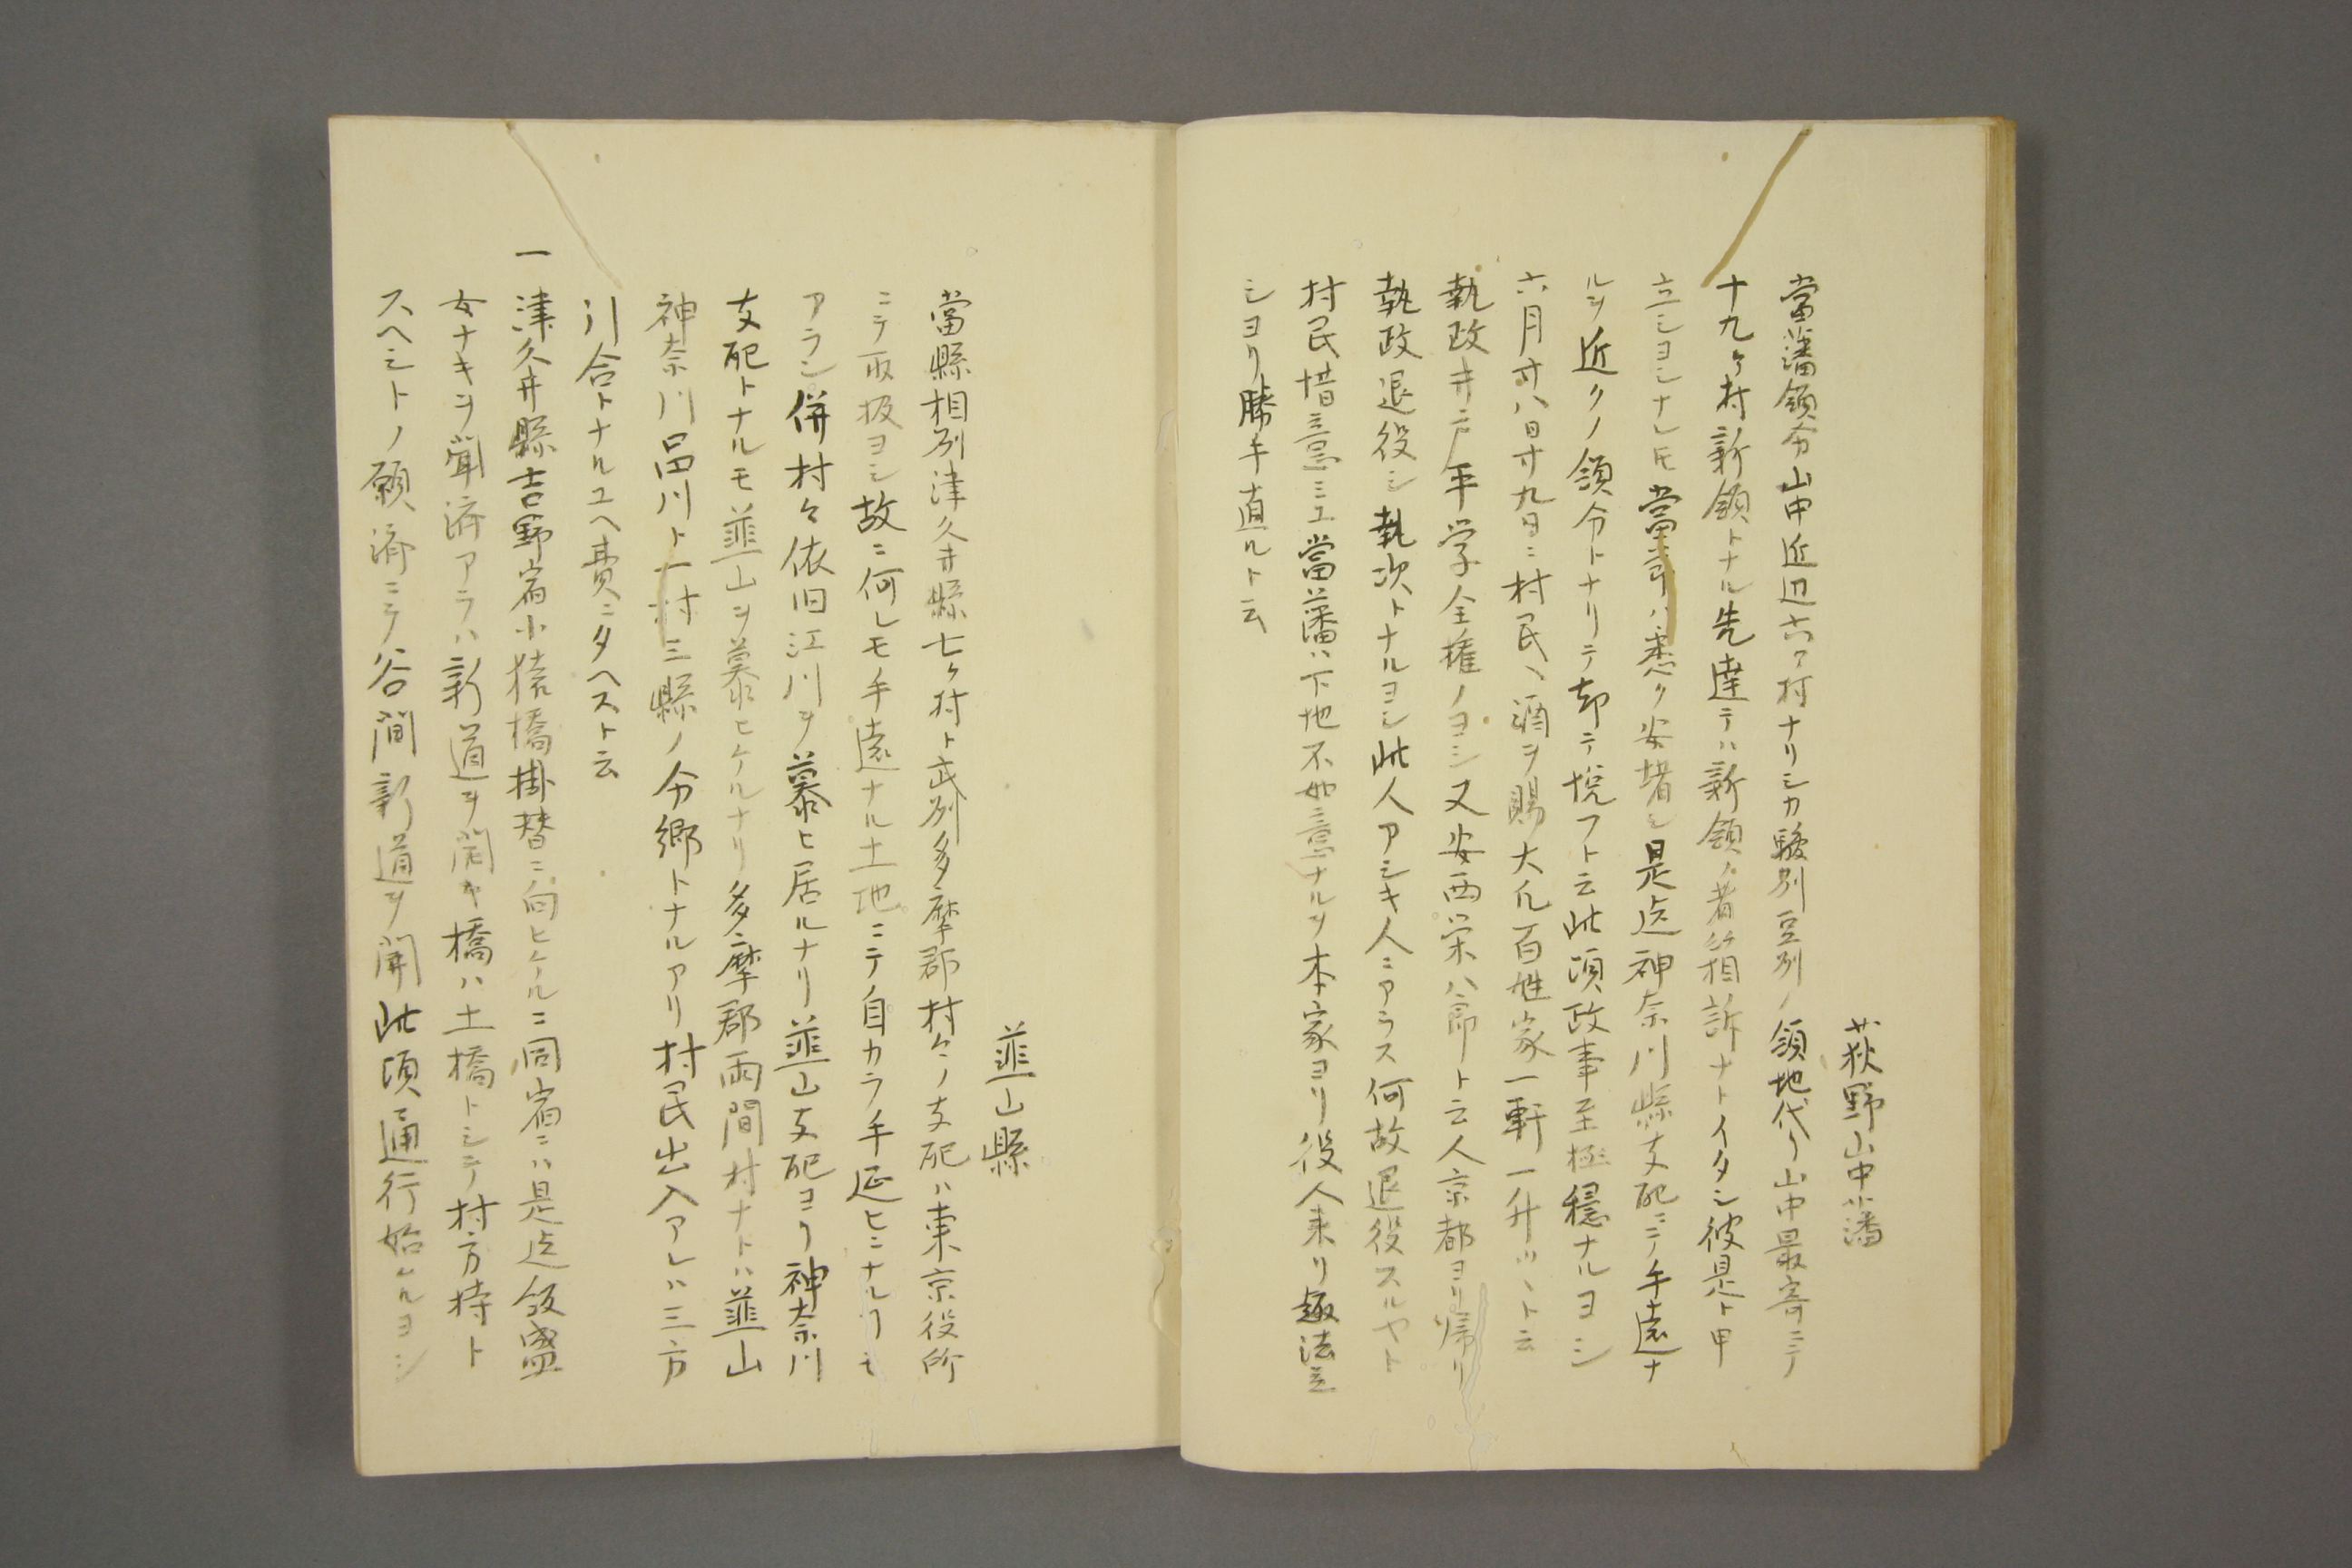 荻野山中藩
當藩領分山中近辺六ケ村ナリシカ駿刕豆刕ノ領地代リ山中最寄ニテ
十九ケ村新領トナル先達テハ新領ノ者共箱訴ナトイタシ彼是ト申
立シヨシナレ𪜈當节ハ悉ク安堵シ是迄神奈川縣支配ニテ手遠ナ
ルヲ近クノ領分トナリテ却テ悦フト云此頃政事至極穏ナルヨシ
六月廿八日廿九日ニ村民ヘ酒ヲ賜大凡百姓家一軒一升ツヽト云
執政井戸平学全権ノヨシ又安西栄八郎ト云人京都ヨリ帰リ
執政退役シ執次トナルヨシ此人アシキ人ニアラス何故退役スルヤト
村民惜ミ思ミエ當藩ハ下地不如意ナルヲ本家ヨリ役人来リ趣法立
シヨリ勝手直ルト云
韮山縣
當縣相刕津久井縣七ケ村ト武刕多摩郡村々ノ支配ハ東京役所
ニテ取扱ヨシ故ニ何レモ手遠ナル土地ニテ自カラ手延ヒニナルリモ
アラン併村々依旧江川ヲ慕ヒ居ルナリ韮山支配ヨリ神奈川
支配トナルモ韮山ヲ慕ヒケルナリ多摩郡両間村ナトハ韮山
神奈川品川ト一村三縣ノ分郷トナルアリ村民出入アレハ三方
引合トナルユヘ費ニタヘスト云
一津久井縣吉野宿小猿橋掛替ニ向ヒケルニ同宿ニハ是迄飯盛
女ナキヲ聞済アラハ新道ヲ開キ橋ハ土橋トシテ村方持ト
スヘシトノ願済ニテ谷間新道ヲ開此頃通行始ケルヨシ